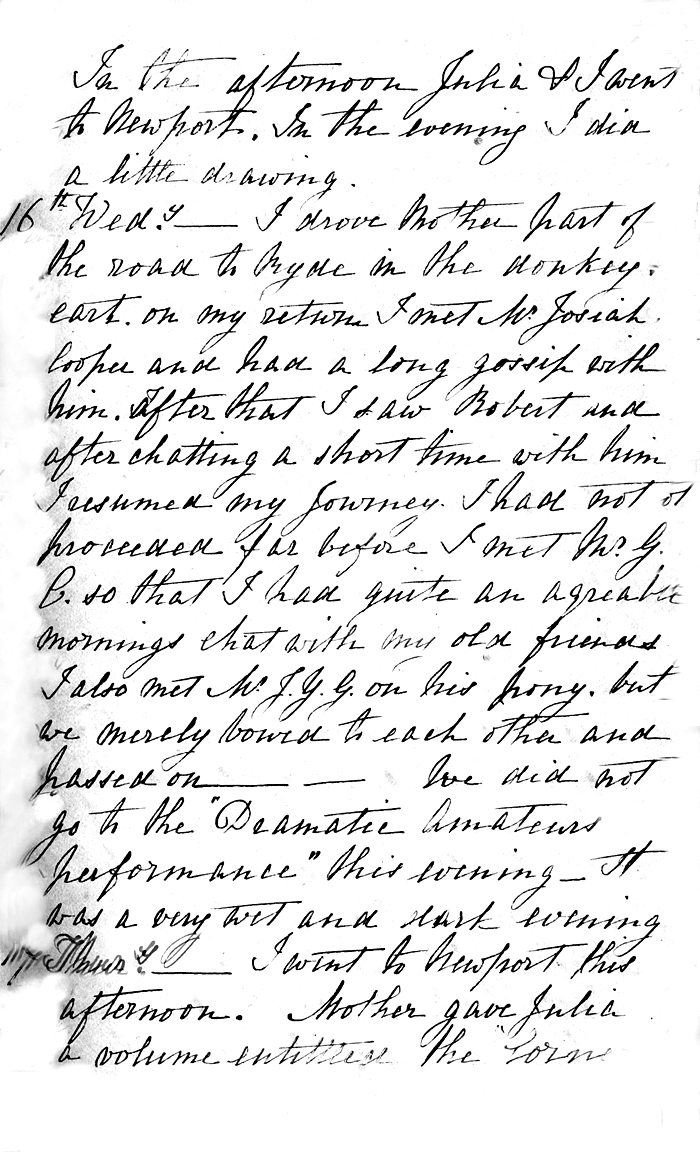 In the afternoon Julia & I went
to Newport. In the evening I did
a little drawing.
16th Wedy — I drove Mother part of
the road to Ryde in the donkey.
cart. on my return I met Mr Josiah
Cooper and had a long gossip with
him. After that I saw Robert and
after chatting a short time with him
I resumed my journey. I had not
proceeded far before I met Mr. G.
C. so that I had quite an agreable
mornings chat with my old friends
I also met Mr J.Y.G. on his pony. but
we merely bowed to each other and
passed on — — We did not
go to the "Dramatic Amateurs
performance" this evening — It
was a very wet and dark evening
17 Thursy — I went to Newport this
afternoon. Mother gave Julia
a volume entitled the